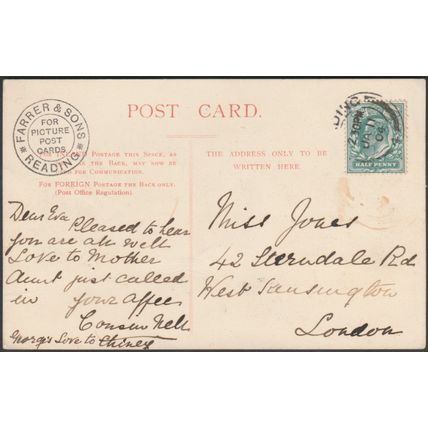 POST CARD.
FARRER & SONS
FOR
PICTURE
POST
CARDS
READING
POSTAGE THIS SPACE, AS
THE BACK, MAY NOW BE
FOR COMMUNICATION.
FOR FOREIGN POSTAGE THE BACK ONLY.
(Post Office Regulation).
THE ADDRESS ONLY TO BE
WRITTEN HERE.
HALF PENNY
Dear Eva
Pleased to hear
you are all well
Love to Mother
Aunt just called
in your Affec
Cousin Nell
Georges Love to
Miss Jones
42 Sterndale Rd
West Kensington
London